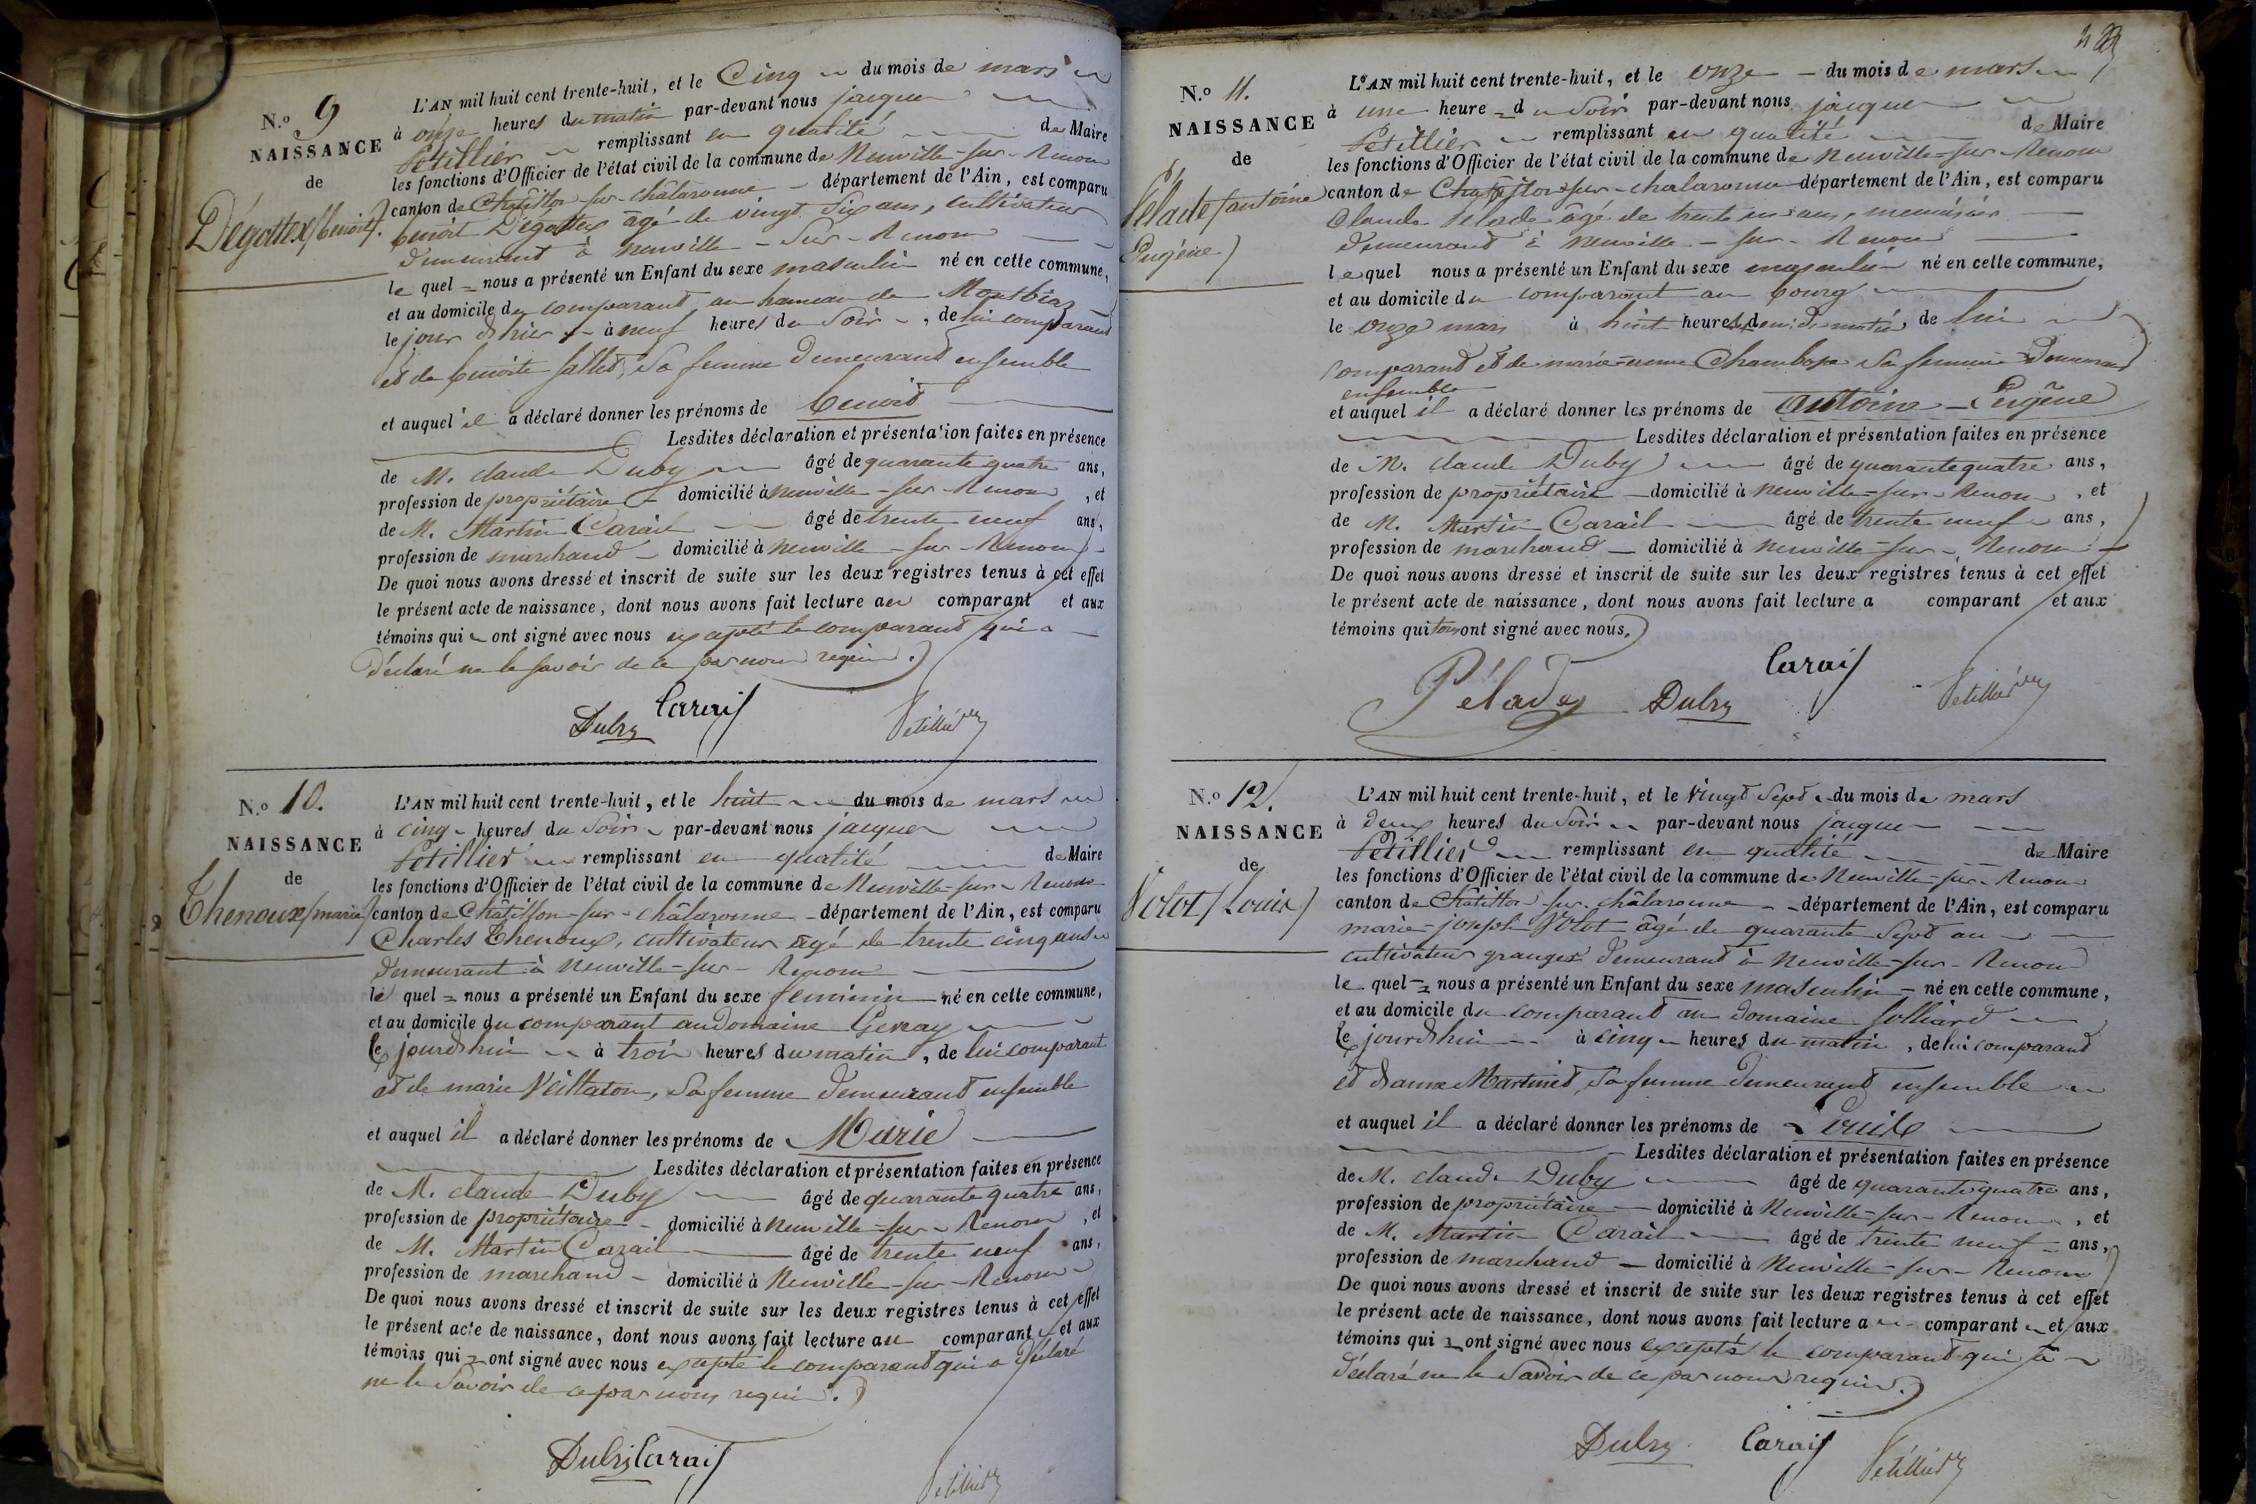 N.o 9
NAISSANCE
de
Dégottex (benoit).
L'AN mil huit cent trente-huit, et le Cinq du mois de mars
à onze heures du matin par-devant nous jacques
Pétillier remplissant en qualité de Maire
les fonctions d'Officier de l'état civil de la commune de Neuville-sur-Renom
canton de Châtillon-sur-châlaronne département de l'Ain, est comparu
benoit Dégottex âgé de vingt six ans, cultivateur
demeurant à neuville-sur-Renom
le quel nous a présenté un Enfant du sexe masculin né en cette commune,
et au domicile du comparant au hameau de Montbiaz
le jour d'hier à neuf heures du soir, de lui comparant
et de benoite sallet, sa femme demeurant ensemble
et auquel il a déclaré donner les prénoms de benoit
Lesdites déclaration et présentation faites en présence
de M. claude Duby âgé de quarante quatre ans,
profession de propriétaire domicilié à neuville-sur-Renom, et
de M. Martin Carail âgé de trente neuf ans,
profession de marchand domicilié à neuville-sur-Renom
De quoi nous avons dressé et inscrit de suite sur les deux registres tenus à cet effet
le présent acte de naissance, dont nous avons fait lecture au comparant et aux
témoins qui ont signé avec nous excepté le comparant qui a
déclaré ne le savoir de ce par nous requis.
Duby Carail Petillier
N.o 10.
NAISSANCE
de
Thenoux (marie)
L'AN mil huit cent trente-huit, et le huit du mois de mars
à cinq heures du soir par-devant nous jacques
Pétillier remplissant en qualité de Maire
les fonctions d'Officier de l'état civil de la commune de Neuville-sur-Renom
canton de Châtillon-sur-châlaronne département de l'Ain, est comparu
Charles Thenoux, cultivateur âgé de trente cinq ans
demeurant à neuville-sur-Renom
le quel nous a présenté un Enfant du sexe feminin né en cette commune,
et au domicile du comparant au Domaine Genray
le jourd'hui à trois heures du matin, de lui comparant
et de marie Veillaton, sa femme demeurant ensemble
et auquel il a déclaré donner les prénoms de Marie
Lesdites déclaration et présentation faites en présence
de M. claude Duby âgé de quarante quatre ans,
profession de propriétaire domicilié à neuville-sur-Renom, et
de M. Martin Carail âgé de trente neuf ans,
profession de marchand domicilié à Neuville-sur-Renom
De quoi nous avons dressé et inscrit de suite sur les deux registres tenus à cet effet
le présent acte de naissance, dont nous avons fait lecture au comparant et aux
témoins qui ont signé avec nous excepté le comparant qui a déclaré
ne le savoir de ce par nous requis.
Duby Carail Petillier
N.o 11.
NAISSANCE
de
Pélade (antoine
Eugène)
L'AN mil huit cent trente-huit, et le onze du mois de mars
à une heure du soir par-devant nous jacques
Pétillier remplissant en qualité de Maire
les fonctions d'Officier de l'état civil de la commune de Neuville-sur-Renom
canton de Chatillon-sur-chalaronne département de l'Ain, est comparu
Claude Pelade âgé de trente ans, menuisier
demeurant à Neuville-sur-Renom
lequel nous a présenté un Enfant du sexe masculin né en cette commune,
et au domicile du comparant au bourg
le onze mars à huit heures du matin de lui
comparant et de marie-anne sa femme demeurant
ensemble
et auquel il a déclaré donner les prénoms de antoine-Eugène
Lesdites déclaration et présentation faites en présence
de M. claude Duby âgé de quarante quatre ans,
profession de propriétaire domicilié à neuville-sur-Renom, et
de M. Martin Carail âgé de trente neuf ans,
profession de marchand domicilié à neuville-sur-Renom
De quoi nous avons dressé et inscrit de suite sur les deux registres tenus à cet effet
le présent acte de naissance, dont nous avons fait lecture a comparant et aux
témoins qui tous ont signé avec nous.
Pélade Duby Carail Petillier
N.o 12.
NAISSANCE
de
Volot (Louis)
L'AN mil huit cent trente-huit, et le vingt sept du mois de mars
à deux heures du soir par-devant nous jacques
Pétillier remplissant en qualité de Maire
les fonctions d'Officier de l'état civil de la commune de Neuville-sur-Renom
canton de Châtillon-sur-châlaronne département de l'Ain, est comparu
marie-joseph Volot âgé de quarante sept an
cultivateur granger demeurant à Neuville-sur-Renom
le quel nous a présenté un Enfant du sexe masculin né en cette commune,
et au domicile du comparant au domaine Solliard
le jourd'hui à cinq heures du matin, de lui comparant
et d'anne Martinet, sa femme demeurant ensemble
et auquel il a déclaré donner les prénoms de Louis
Lesdites déclaration et présentation faites en présence
de M. claude Duby âgé de quarante quatre ans,
profession de propriétaire domicilié à Neuville-sur-Renom, et
de M. Martin Carail âgé de trente neuf ans,
profession de marchand domicilié à Neuville-sur-Renom
De quoi nous avons dressé et inscrit de suite sur les deux registres tenus à cet effet
le présent acte de naissance, dont nous avons fait lecture a comparant et aux
témoins qui ont signé avec nous excepté le comparant qui a
déclaré ne le savoir de ce par nous requis.
Duby Carail Petillier